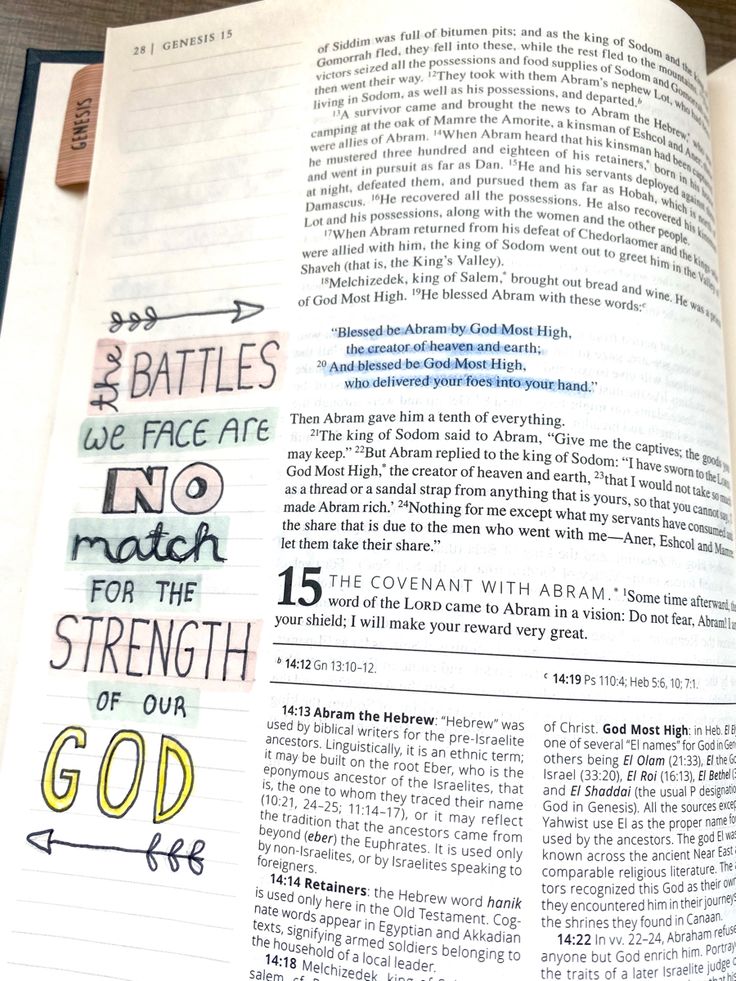 28 | GENESIS 15
GENESIS
of Siddim was full of bitumen pits; and as the king of Sodom and the king
Gomorrah fled, they fell into these, while the rest fled to the mountains
victors seized all the possessions and food supplies of Sodom and Gomorrah
then went their way. 12They took with them Abram's nephew Lot, who had been
living in Sodom, as well as his possessions, and departed.b
13A survivor came and brought the news to Abram the Hebrew,*
camping at the oak of Mamre the Amorite, a kinsman of Eshcol and Aner
were allies of Abram. 14When Abram heard that his kinsman had been captured
he mustered three hundred and eighteen of his retainers,* born in his
and went in pursuit as far as Dan. 15He and his servants deployed against
at night, defeated them, and pursued them as far as Hobah, which is north
Damascus. 16He recovered all the possessions. He also recovered his kinsman
Lot and his possessions, along with the women and the other people.
17When Abram returned from his defeat of Chedorlaomer and the kings
were allied with him, the king of Sodom went out to greet him in the Valley
Shaveh (that is, the King's Valley).
18Melchizedek, king of Salem,* brought out bread and wine. He was a priest
of God Most High. 19He blessed Abram with these words:c
“Blessed be Abram by God Most High,
the creator of heaven and earth;
20 And blessed be God Most High,
who delivered your foes into your hand.”
Then Abram gave him a tenth of everything.
21The king of Sodom said to Abram, “Give me the captives; the goods you
may keep.” 22But Abram replied to the king of Sodom: “I have sworn to the LORD
God Most High,* the creator of heaven and earth, 23that I would not take so much
as a thread or a sandal strap from anything that is yours, so that you cannot say, 'I
made Abram rich.' 24Nothing for me except what my servants have consumed and
the share that is due to the men who went with me—Aner, Eshcol and Mamre
let them take their share.”
15 THE COVENANT WITH ABRAM.* 1Some time afterward, the
word of the LORD came to Abram in a vision: Do not fear, Abram! I am
your shield; I will make your reward very great.
b 14:12 Gn 13:10–12.
c 14:19 Ps 110:4; Heb 5:6, 10; 7:1.
the BATTLES
WE FACE ARE
NO
match
FOR THE
STRENGTH
OF OUR
GOD
14:13 Abram the Hebrew: “Hebrew” was
used by biblical writers for the pre-Israelite
ancestors. Linguistically, it is an ethnic term;
it may be built on the root Eber, who is the
eponymous ancestor of the Israelites, that
is, the one to whom they traced their name
(10:21, 24–25; 11:14–17), or it may reflect
the tradition that the ancestors came from
beyond (eber) the Euphrates. It is used only
by non-Israelites, or by Israelites speaking to
foreigners.
14:14 Retainers: the Hebrew word hanik
is used only here in the Old Testament. Cog-
nate words appear in Egyptian and Akkadian
texts, signifying armed soldiers belonging to
the household of a local leader.
14:18 Melchizedek, king of
salem, cf.
of Christ. God Most High: in Heb. El
one of several “El names” for God in
others being El Olam (21:33), El the
Israel (33:20), El Roi (16:13), El Bethel
and El Shaddai (the usual P designation
God in Genesis). All the sources except
Yahwist use El as the proper name for
used by the ancestors. The god El was
known across the ancient Near East
comparable religious literature. The
tors recognized this God as their own
they encountered him in their journeys
the shrines they found in Canaan.
14:22 In vv. 22–24, Abraham refuses
anyone but God enrich him. Portrayed
the traits of a later Israelite judge